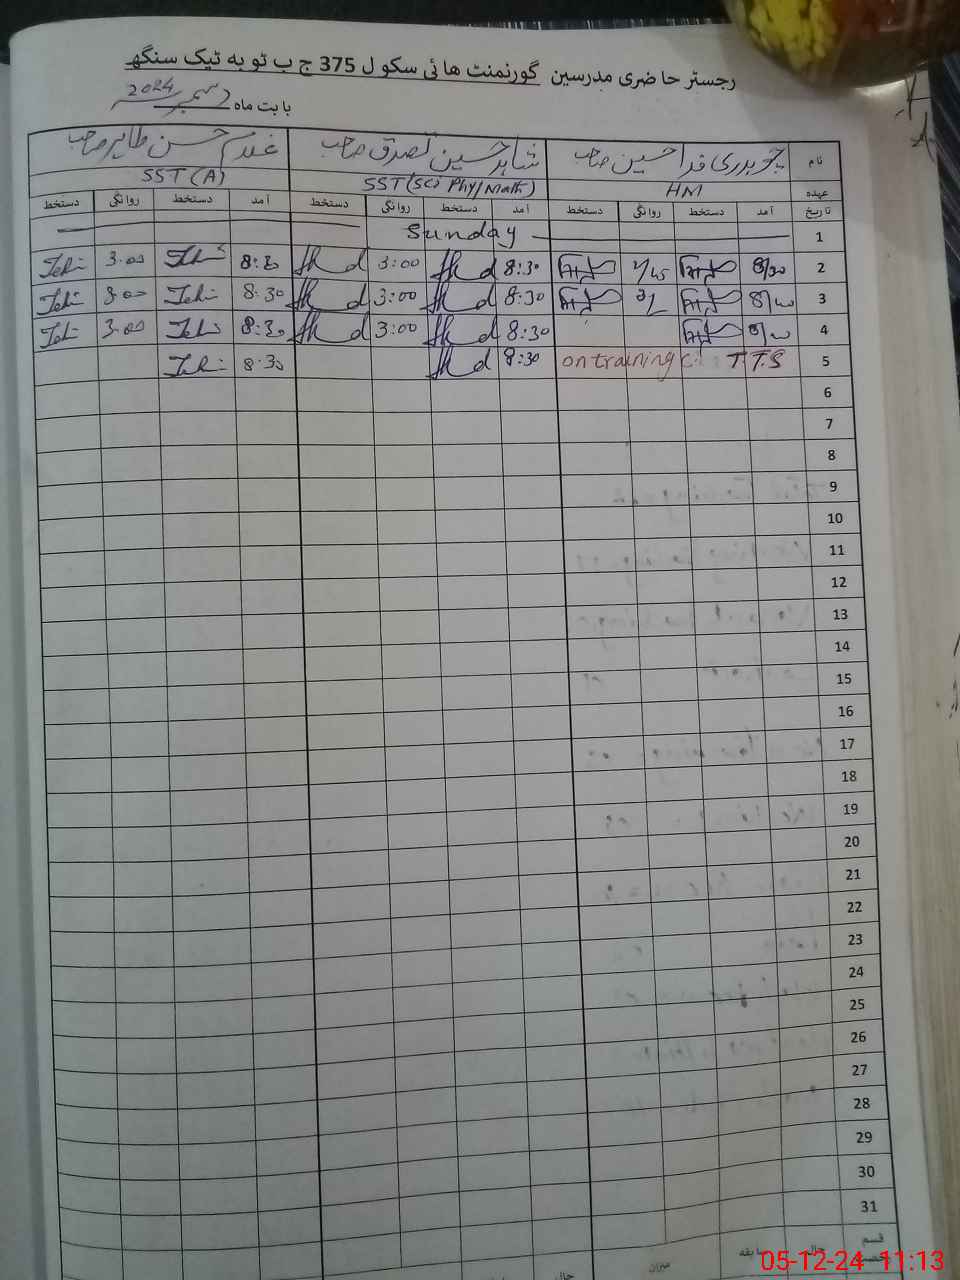 رجسٹر حاضری مدرسین گورنمنٹ ہائی سکول 375 ج ب ٹوبہ ٹیک سنگھ
بابت ماہ دسمبر 2024
نام چوہدری فدا حسین صاحب شاہد حسین تصدق صاحب غلام حسن طاہر صاحب
عہدہ HM SST(Sci Phy/Math) SST(A)
تاریخ آمد دستخط روانگی دستخط آمد دستخط روانگی دستخط آمد دستخط روانگی دستخط
1 Sunday
2 8:30 3:00 8:30 3:00
3 8:30 3:00 8:30 3:00
4 8:30 3:00 8:30 3:00
5 on training T.T.S 8:30 8:30
6
7
8
9
10
11
12
13
14
15
16
17
18
19
20
21
22
23
24
25
26
27
28
29
30
31
قسم حال سابقہ میزان حال
05-12-24 11:13